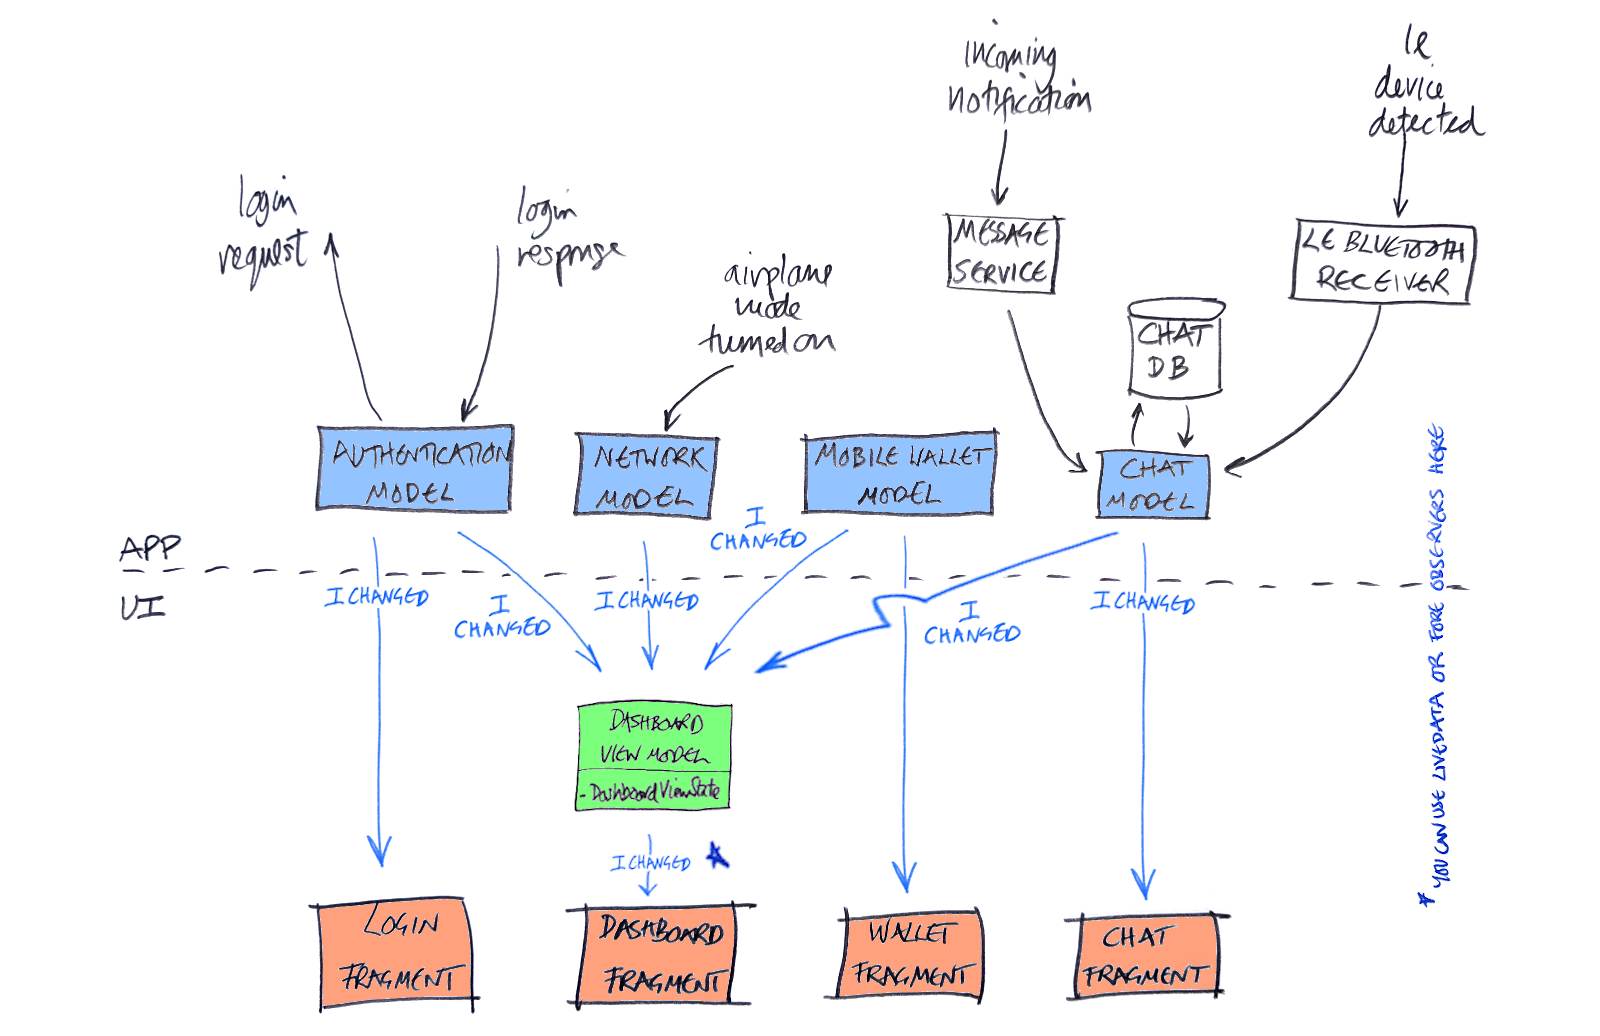 incoming
notification
le
device
detected
login
request
login
response
airplane
mode
turned on
MESSAGE
SERVICE
LE BLUETOOTH
RECEIVER
CHAT
DB
AUTHENTICATION
MODEL
NETWORK
MODEL
MOBILE WALLET
MODEL
CHAT
MODEL
APP
UI
I
CHANGED
I CHANGED
I
CHANGED
I CHANGED
I
CHANGED
I CHANGED
DASHBOARD
VIEW MODEL
- DashboardViewState
I CHANGED ★
LOGIN
FRAGMENT
DASHBOARD
FRAGMENT
WALLET
FRAGMENT
CHAT
FRAGMENT
* YOU CAN USE LIVEDATA OR FORE OBSERVERS HERE